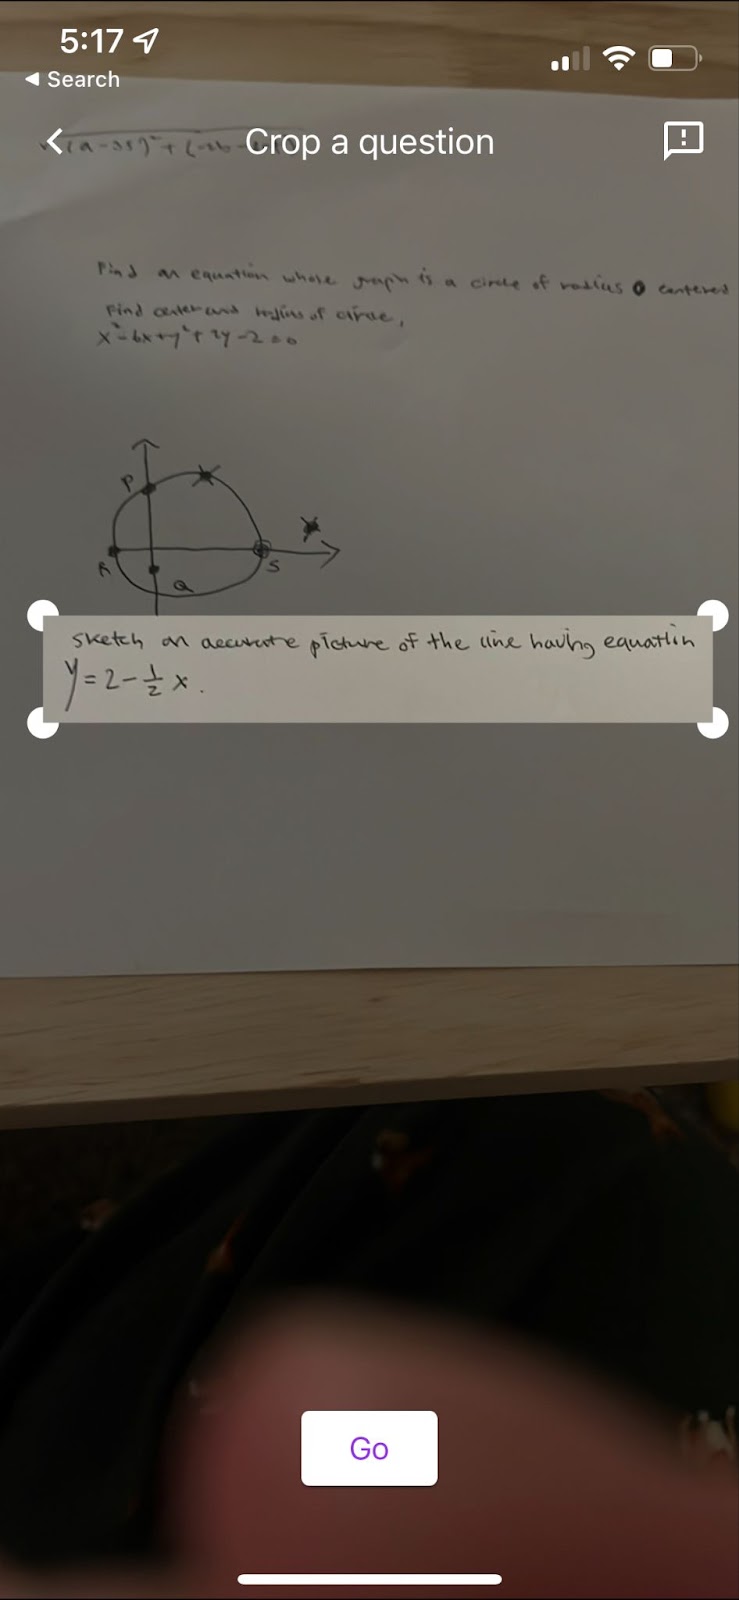 5:17
Search
Crop a question
Find an equation whose graph is a circle of radius centered
Find center and radius of circle,
x² - 6x + y² + 2y - 2 = 0
P
R
S
Q
Sketch an accurate picture of the line having equatiin
y = 2 - 1/2 x.
Go